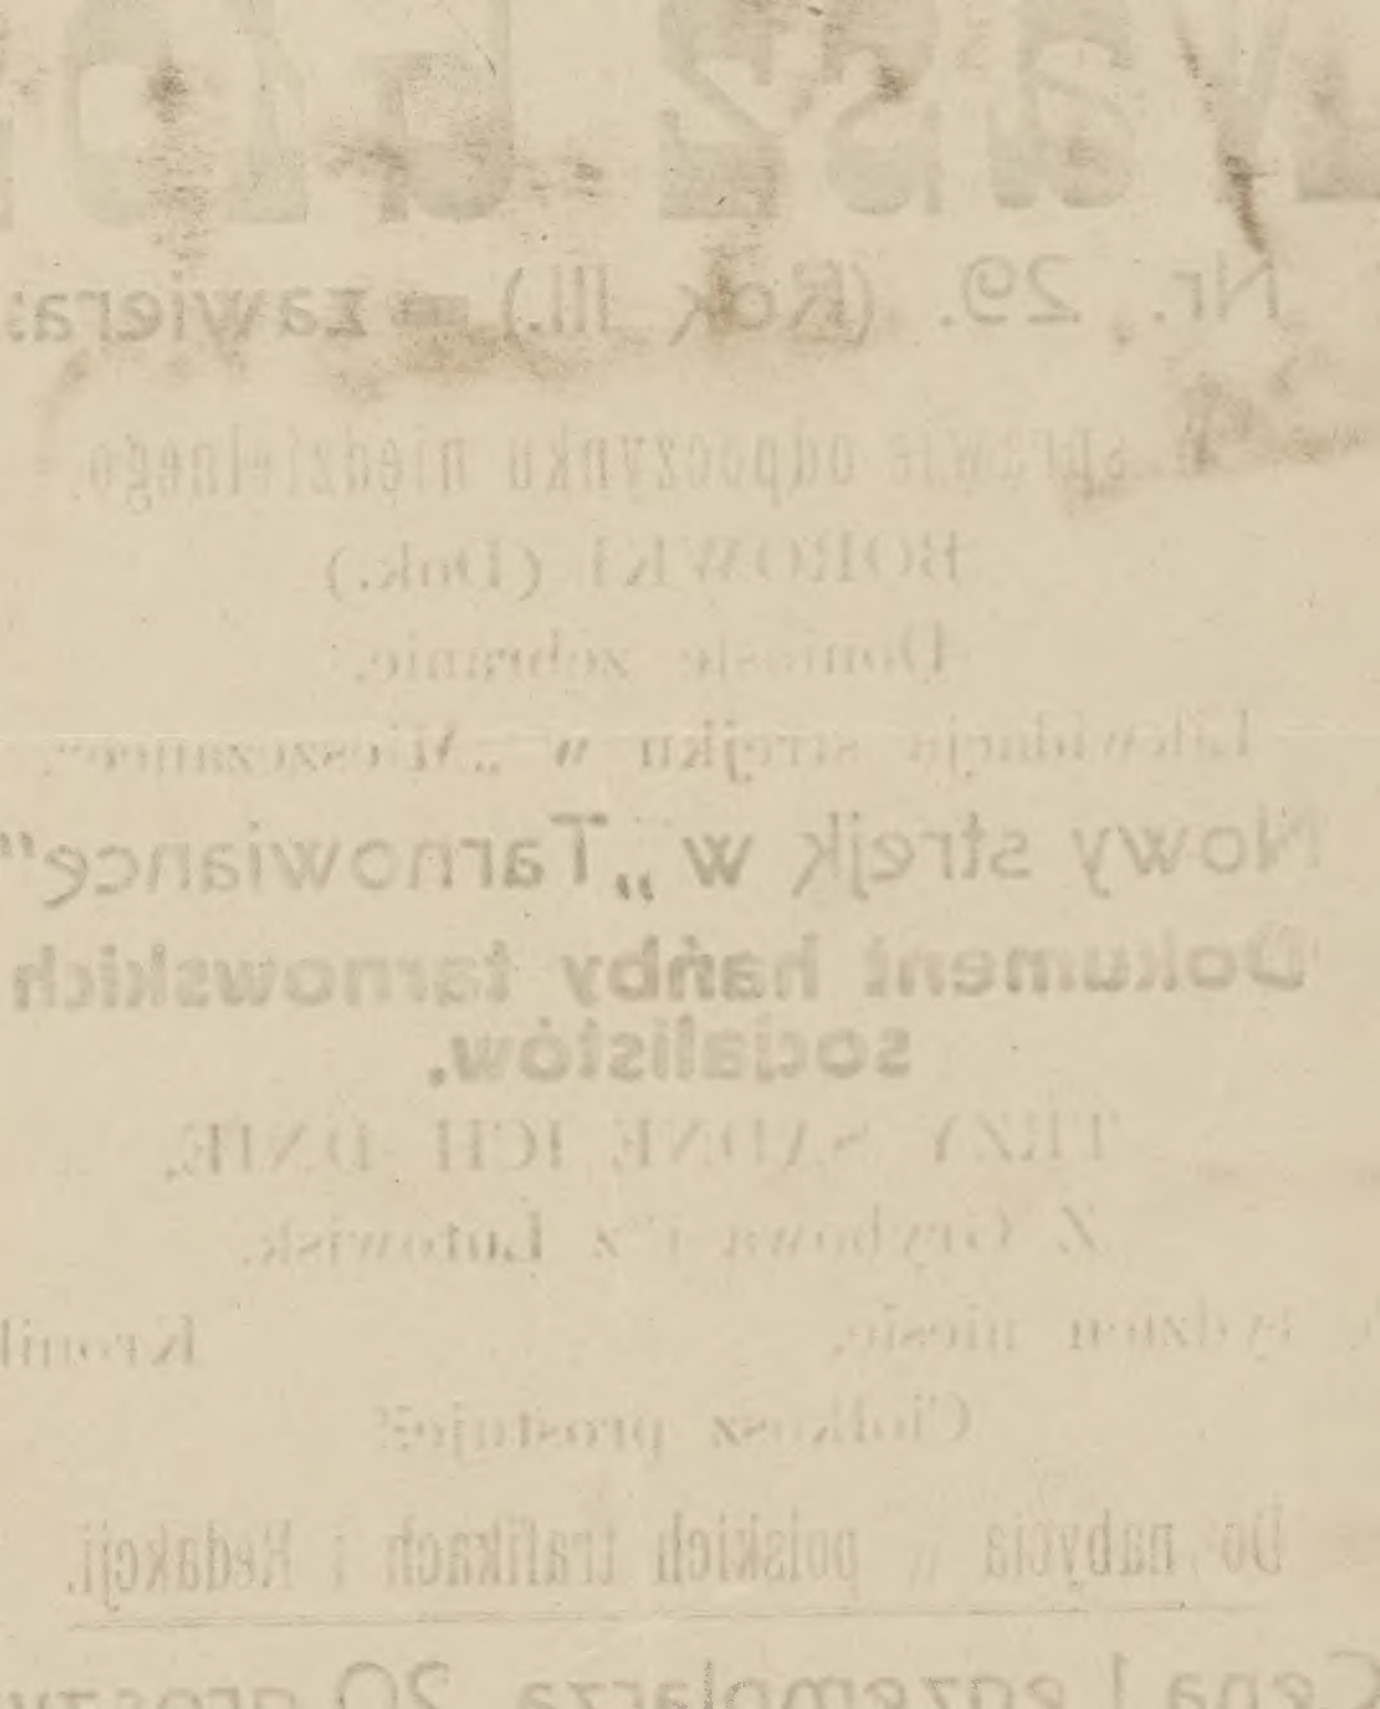 Nr. 29. (Rok III.) — zawiera:
sprawie odpoczynku niedzielnego.
BORÓWKI (Dok.)
Doniosłe zebranie.
Likwidacja strejku w „Mieszczance".
Nowy strejk w „Tarnowiance"
Dokument hańby tarnowskich
socjalistów.
TRZY SĄDNE ICH DNIE.
Z Grybowa i z Lutowisk.
tydzień niesie.
Ciołkosz prostuje?
Do nabycia polskich trafikach i Redakcji.
Cena 1 egzemplarza 20 groszy